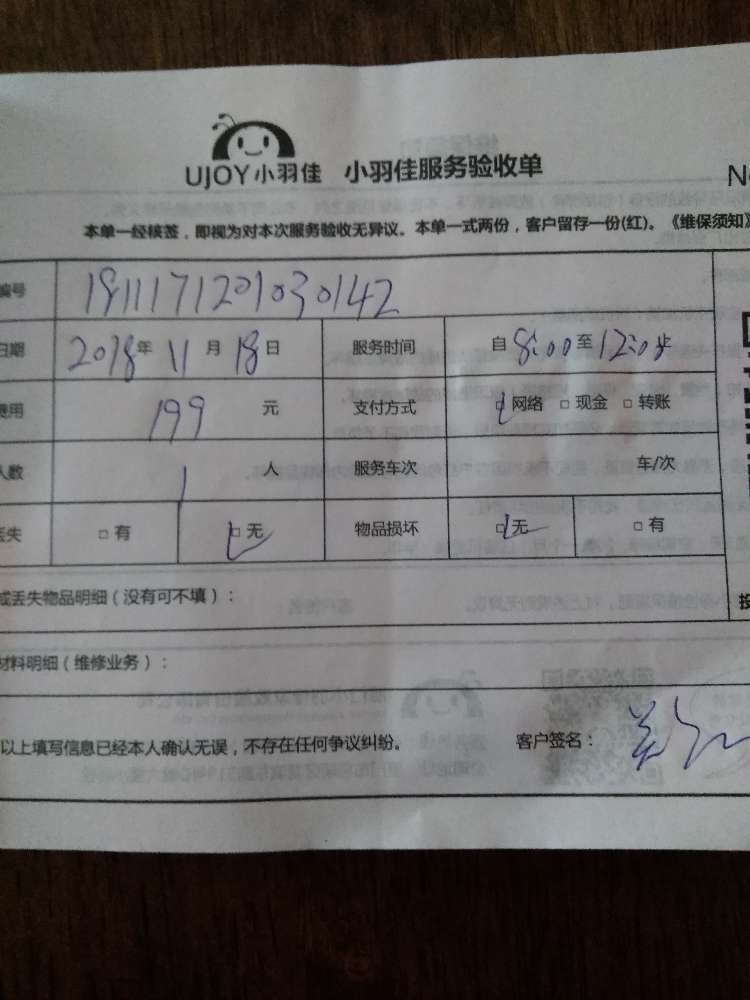 UJOY小羽佳 小羽佳服务验收单
本单一经核签，即视为对本次服务验收无异议。本单一式两份，客户留存一份(红)。《维保须知》
编号 1811171201030142
日期 2018年 11 月 18 日 服务时间 自 8:00 至 12:00 止
费用 199 元 支付方式 □ 网络 □ 现金 □ 转账
人数 1 人 服务车次 车/次
丢失 □ 有 □ 无 物品损坏 □ 无 □ 有
或丢失物品明细（没有可不填）：
材料明细（维修业务）：
以上填写信息已经本人确认无误，不存在任何争议纠纷。 客户签名：